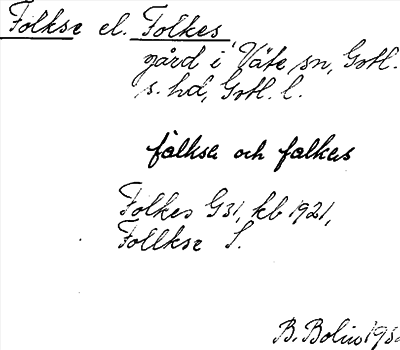 Folkse el. Folkes
gård i Väte sn, Gotl.
s. hd, Gotl. l.
falkse och falkes
Folkes G31, kb 1921,
Follkse S.
B. Bolin